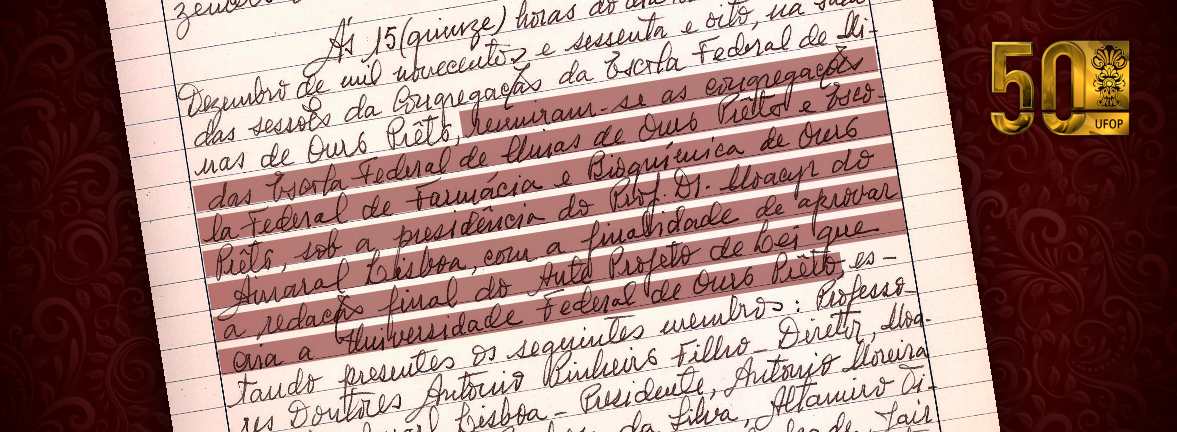 Às 15 (quinze) horas do
Dezembro de mil novecentos e sessenta e oito, na sala
das sessões da Congregação da Escola Federal de Mi-
nas de Ouro Prêto, reuniram-se as congregações
das Escola Federal de Minas de Ouro Prêto e Esco-
la Federal de Farmácia e Bioquímica de Ouro
Prêto, sob a presidência do Prof. Dr. Moacyr do
Amaral Lisboa, com a finalidade de aprovar
a redação final do Ante Projeto de Lei que
cria a Universidade Federal de Ouro Prêto, es-
tando presentes os seguintes membros: Professo-
res Doutores Antonio Pinheiro Filho - Diretor, Moa-
Lisboa - Presidente, Antonio Moreira
da Silva, Altamiro Ti-
de, Jair
50
UFOP